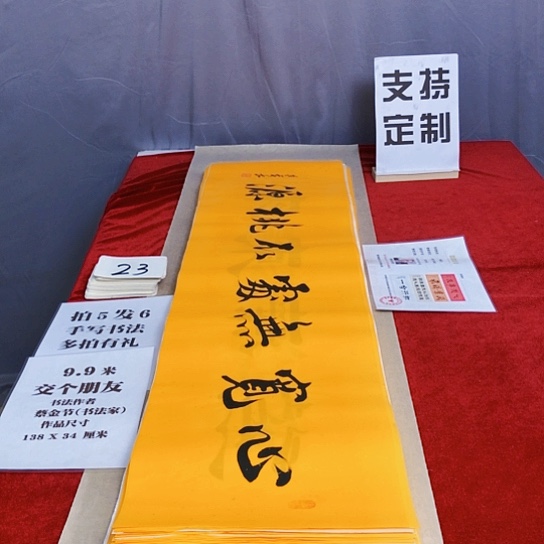 支持
定制
心寬無處不桃源
23
拍5发6
手写书法
多拍有礼
9.9 米
交个朋友
书法作者
蔡金节(书法家)
作品尺寸
138 X 34 厘米